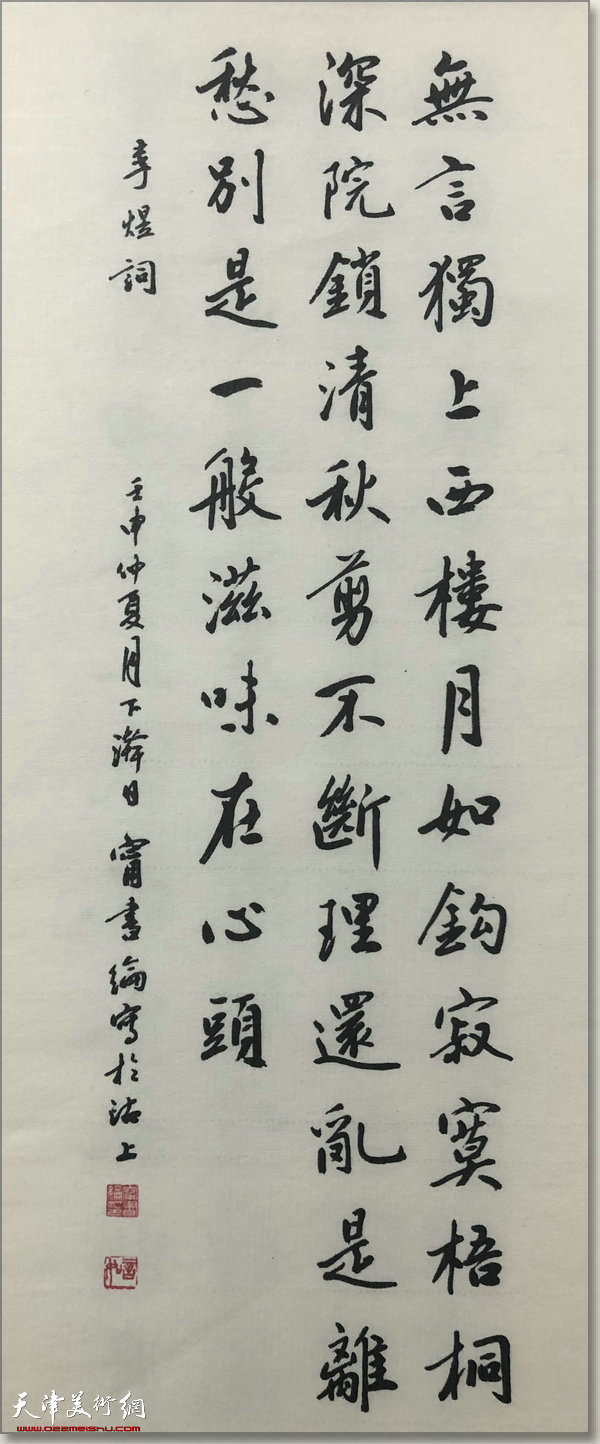 無言獨上西樓月如鈎寂寞梧桐
深院鎖清秋剪不斷理還亂是離
愁別是一般滋味在心頭
李煜詞
壬申仲夏月下澣日甯書綸寫於沽上
天津美術網
www.022meishu.com